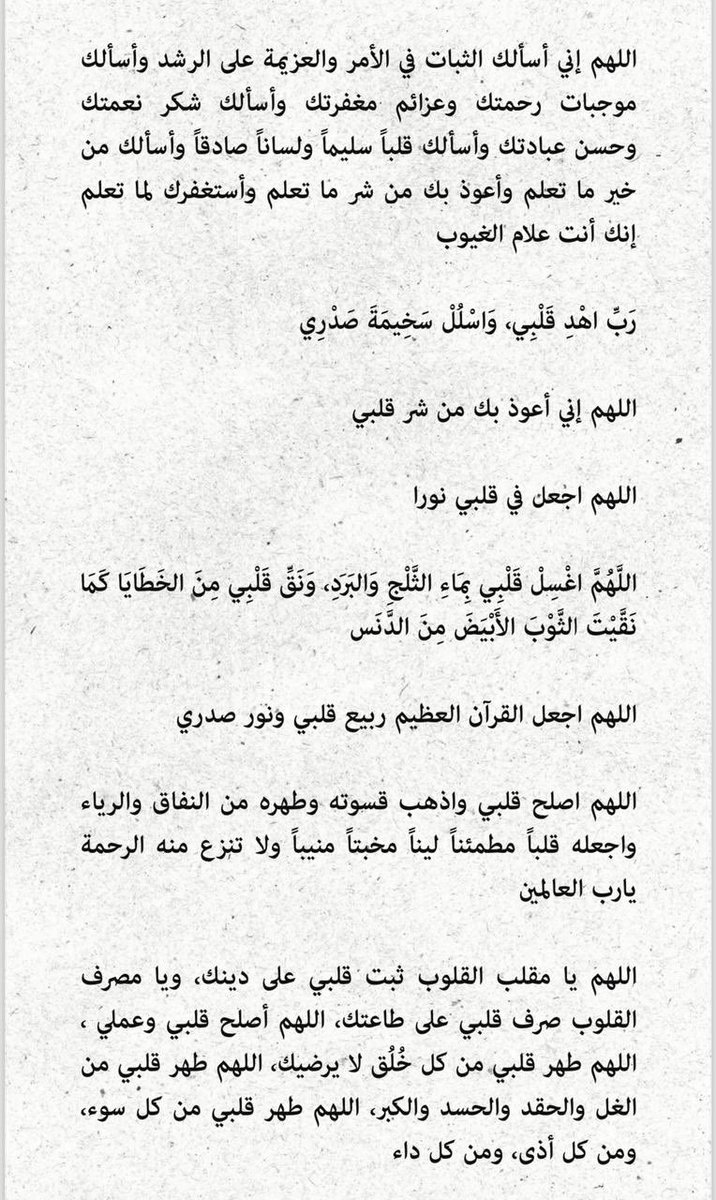 اللهم إني أسألك الثبات في الأمر والعزيمة على الرشد وأسألك
موجبات رحمتك وعزائم مغفرتك وأسألك شكر نعمتك
وحسن عبادتك وأسألك قلباً سليماً ولساناً صادقاً وأسألك من
خير ما تعلم وأعوذ بك من شر ما تعلم وأستغفرك لما تعلم
إنك أنت علام الغيوب
رَبِّ اهْدِ قَلْبِي، وَاسْلُلْ سَخِيمَةَ صَدْرِي
اللهم إني أعوذ بك من شر قلبي
اللهم اجعل في قلبي نورا
اللَّهُمَّ اغْسِلْ قَلْبِي بِمَاءِ الثَّلْجِ وَالبَرَدِ، وَنَقِّ قَلْبِي مِنَ الخَطَايَا كَمَا
نَقَّيْتَ الثَّوْبَ الأَبْيَضَ مِنَ الدَّنَس
اللهم اجعل القرآن العظيم ربيع قلبي ونور صدري
اللهم اصلح قلبي واذهب قسوته وطهره من النفاق والرياء
واجعله قلباً مطمئناً ليناً مخبتاً منيباً ولا تنزع منه الرحمة
يارب العالمين
اللهم يا مقلب القلوب ثبت قلبي على دينك، ويا مصرف
القلوب صرف قلبي على طاعتك، اللهم أصلح قلبي وعملي ،
اللهم طهر قلبي من كل خُلُق لا يرضيك، اللهم طهر قلبي من
الغل والحقد والحسد والكبر، اللهم طهر قلبي من كل سوء،
ومن كل أذى، ومن كل داء